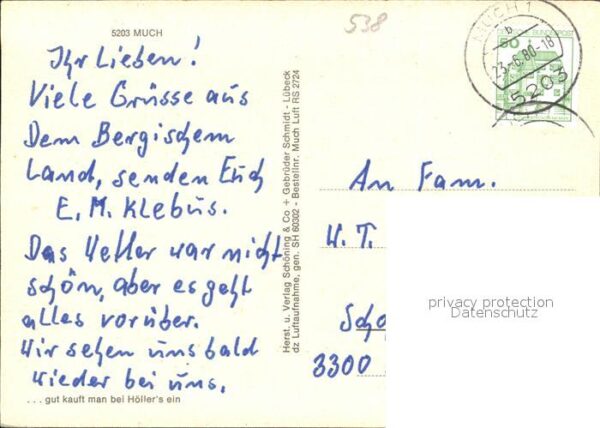 5203 MUCH
538
Ihr Lieben!
Viele Grüsse aus
Dem Bergischem
Land, senden Euch
E. M. Klebus.
Das Wetter war nicht
schön, aber es geht
alles vorüber.
Wir sehen uns bald
wieder bei uns.
... gut kauft man bei Höller's ein
Herst. u. Verlag Schöning & Co + Gebrüder Schmidt - Lübeck
dz Luftaufnahme, gen. SH 60362 - Bestellnr. Much Luft RS 2724
MUCH 1
b
23.-6.80-18
5203
50
BUNDESPOST
An Fam.
W. T.
Scho
3300
privacy protection
Datenschutz